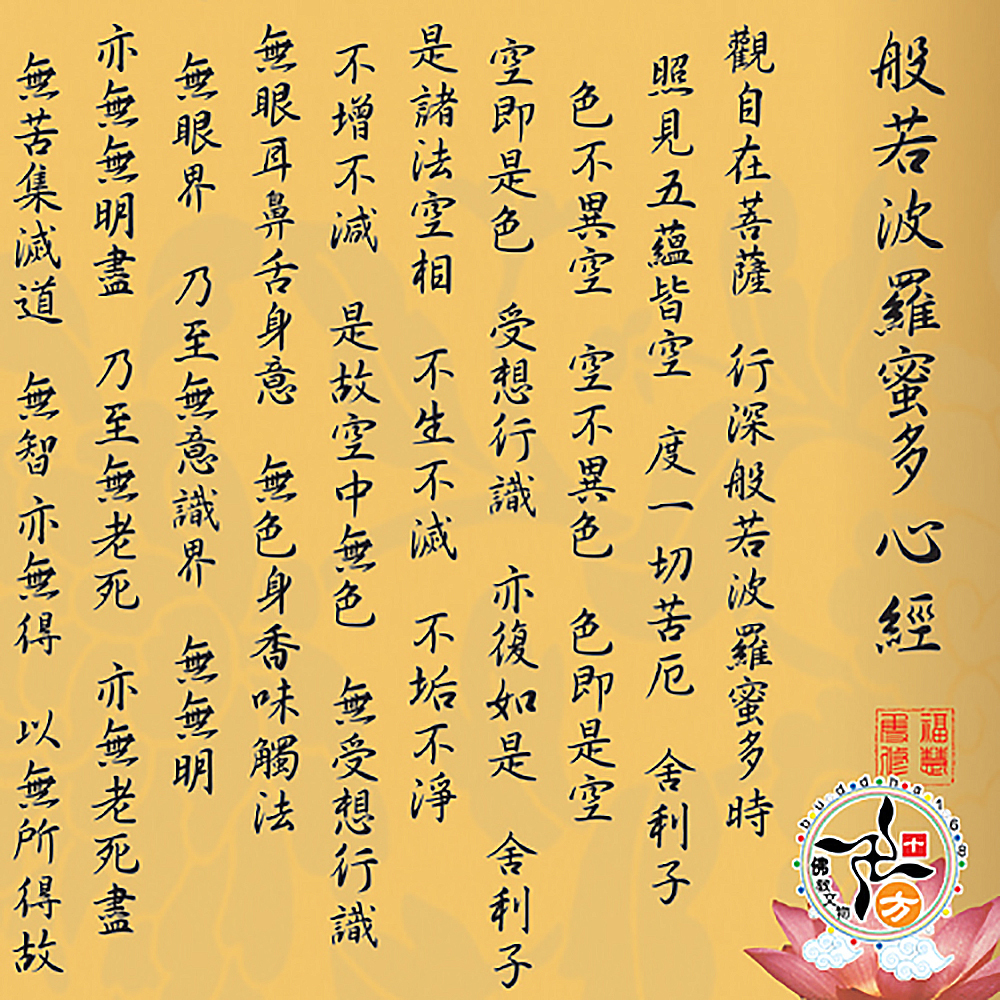 般若波羅蜜多心經
觀自在菩薩 行深般若波羅蜜多時
照見五蘊皆空 度一切苦厄 舍利子
色不異空 空不異色 色即是空
空即是色 受想行識 亦復如是 舍利子
是諸法空相 不生不滅 不垢不淨
不增不減 是故空中無色 無受想行識
無眼耳鼻舌身意 無色身香味觸法
無眼界 乃至無意識界 無無明
亦無無明盡 乃至無老死 亦無老死盡
無苦集滅道 無智亦無得 以無所得故
福慧
雙修
buddhat68
十方
佛教文物